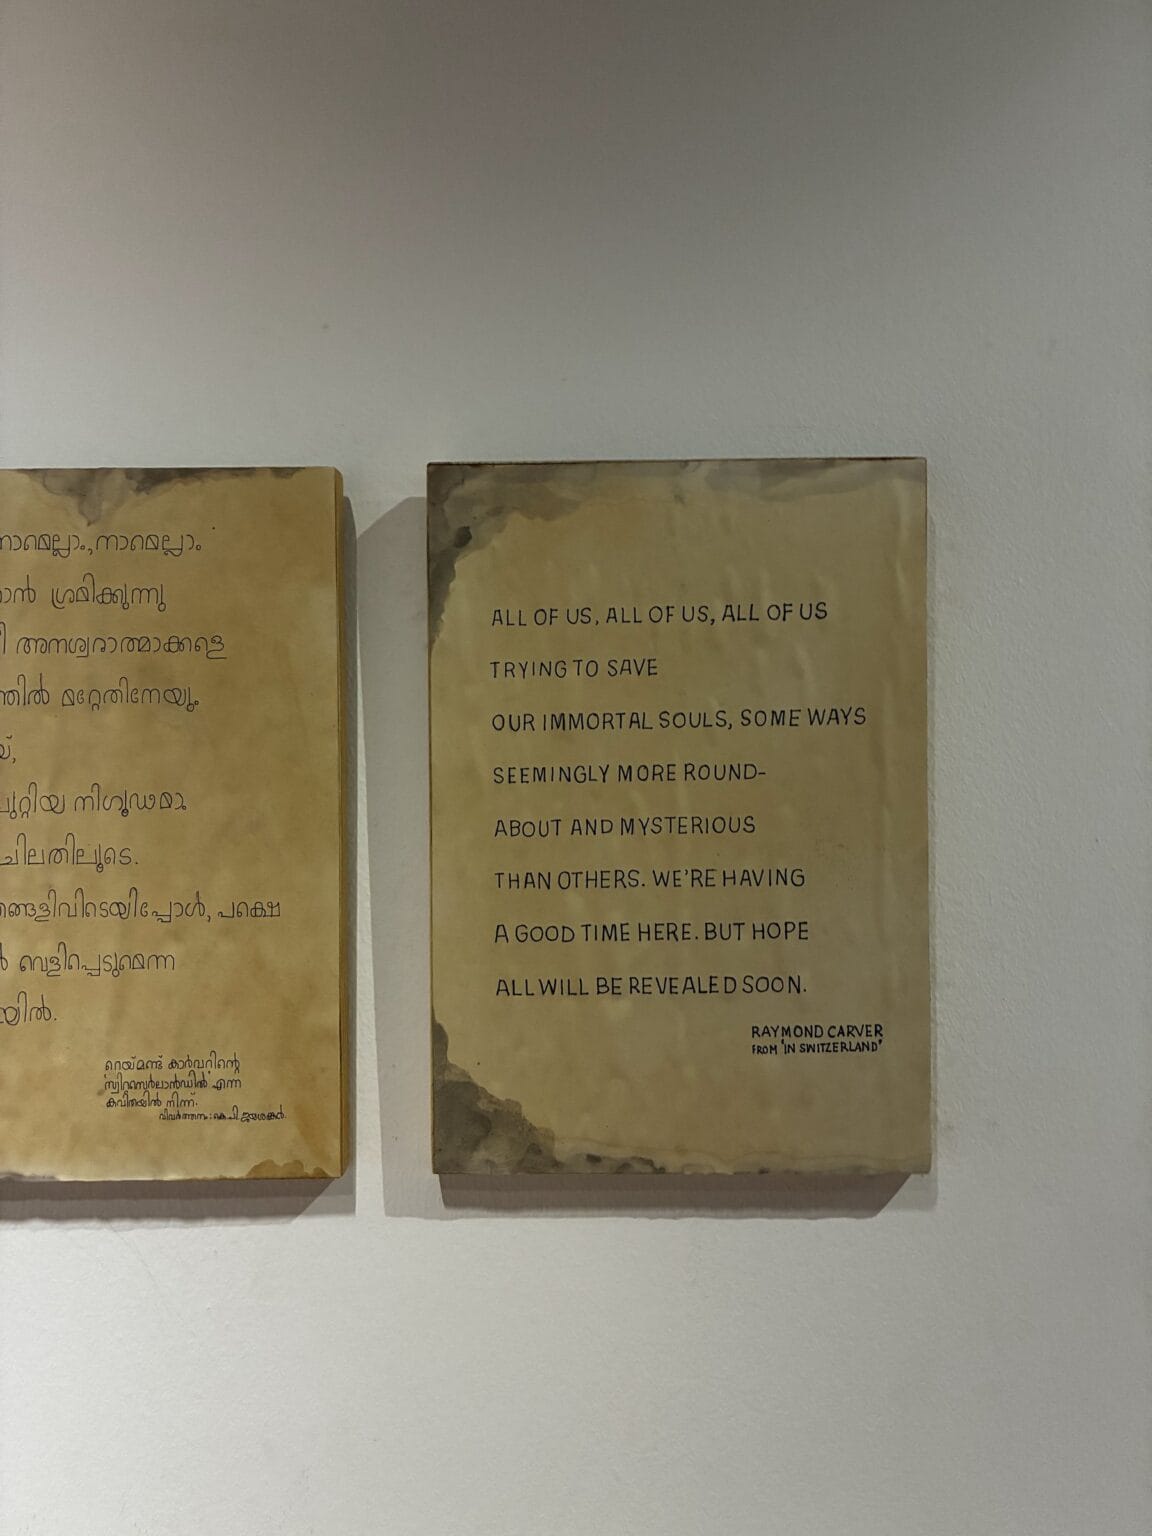 നാമെല്ലാം, നാമെല്ലാം
ശ്രമിക്കുന്നു
അനശ്വരാത്മാക്കളെ
മറ്റേതിനേയും
നിഗൂഢമാം
ചിലതിലൂടെ.
പക്ഷെ
വെളിപ്പെടുമെന്ന
റെയ്മണ്ട് കാർവറിന്റെ
'സ്വിറ്റ്സെർലാൻഡിൽ' എന്ന
കവിതയിൽ നിന്ന്.
വിവർത്തനം: കെ.പി. ജയശങ്കർ.
ALL OF US, ALL OF US, ALL OF US
TRYING TO SAVE
OUR IMMORTAL SOULS, SOME WAYS
SEEMINGLY MORE ROUND-
ABOUT AND MYSTERIOUS
THAN OTHERS. WE'RE HAVING
A GOOD TIME HERE. BUT HOPE
ALL WILL BE REVEALED SOON.
RAYMOND CARVER
FROM 'IN SWITZERLAND'